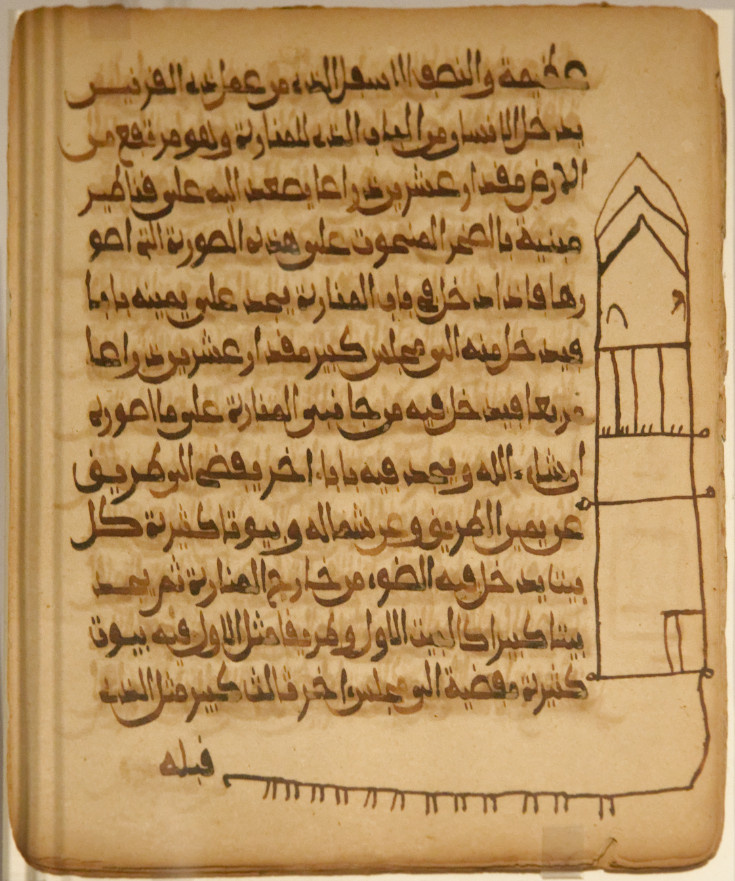 عظيمة والنصف الاسفل الذى من عمل ذى القرنيس
يدخل الانسان من الباب الذى للمنارة وهو مرتفع من
الارض مقدار عشرين ذراعا يصعد اليه على قناطير
مبنية بالصخر المنحوت على هذه الصورة التى اصو
رها فاذا دخل فى باب المنارة يجد على يمينه بابا
فيدخل منه الى مجلس كبير مقدار عشرين ذراعا
مربعا فيدخل فيه من جانبى المنارة على ما اصوره
ان شاء الله ويجد فيه بابا اخر يفضى الى طريق
عن يمين الطريق وعن شماله وبيوتا كثيرة كل
بيتا يدخل فيه الضوء من خارج المنارة ثم يجد
بيتا كبيرا كالبيت الاول وطريقا مثل الاول فيه بيوت
كثيرة مفضية الى مجلس اخر ثالث كبير مثل الذى
قبله